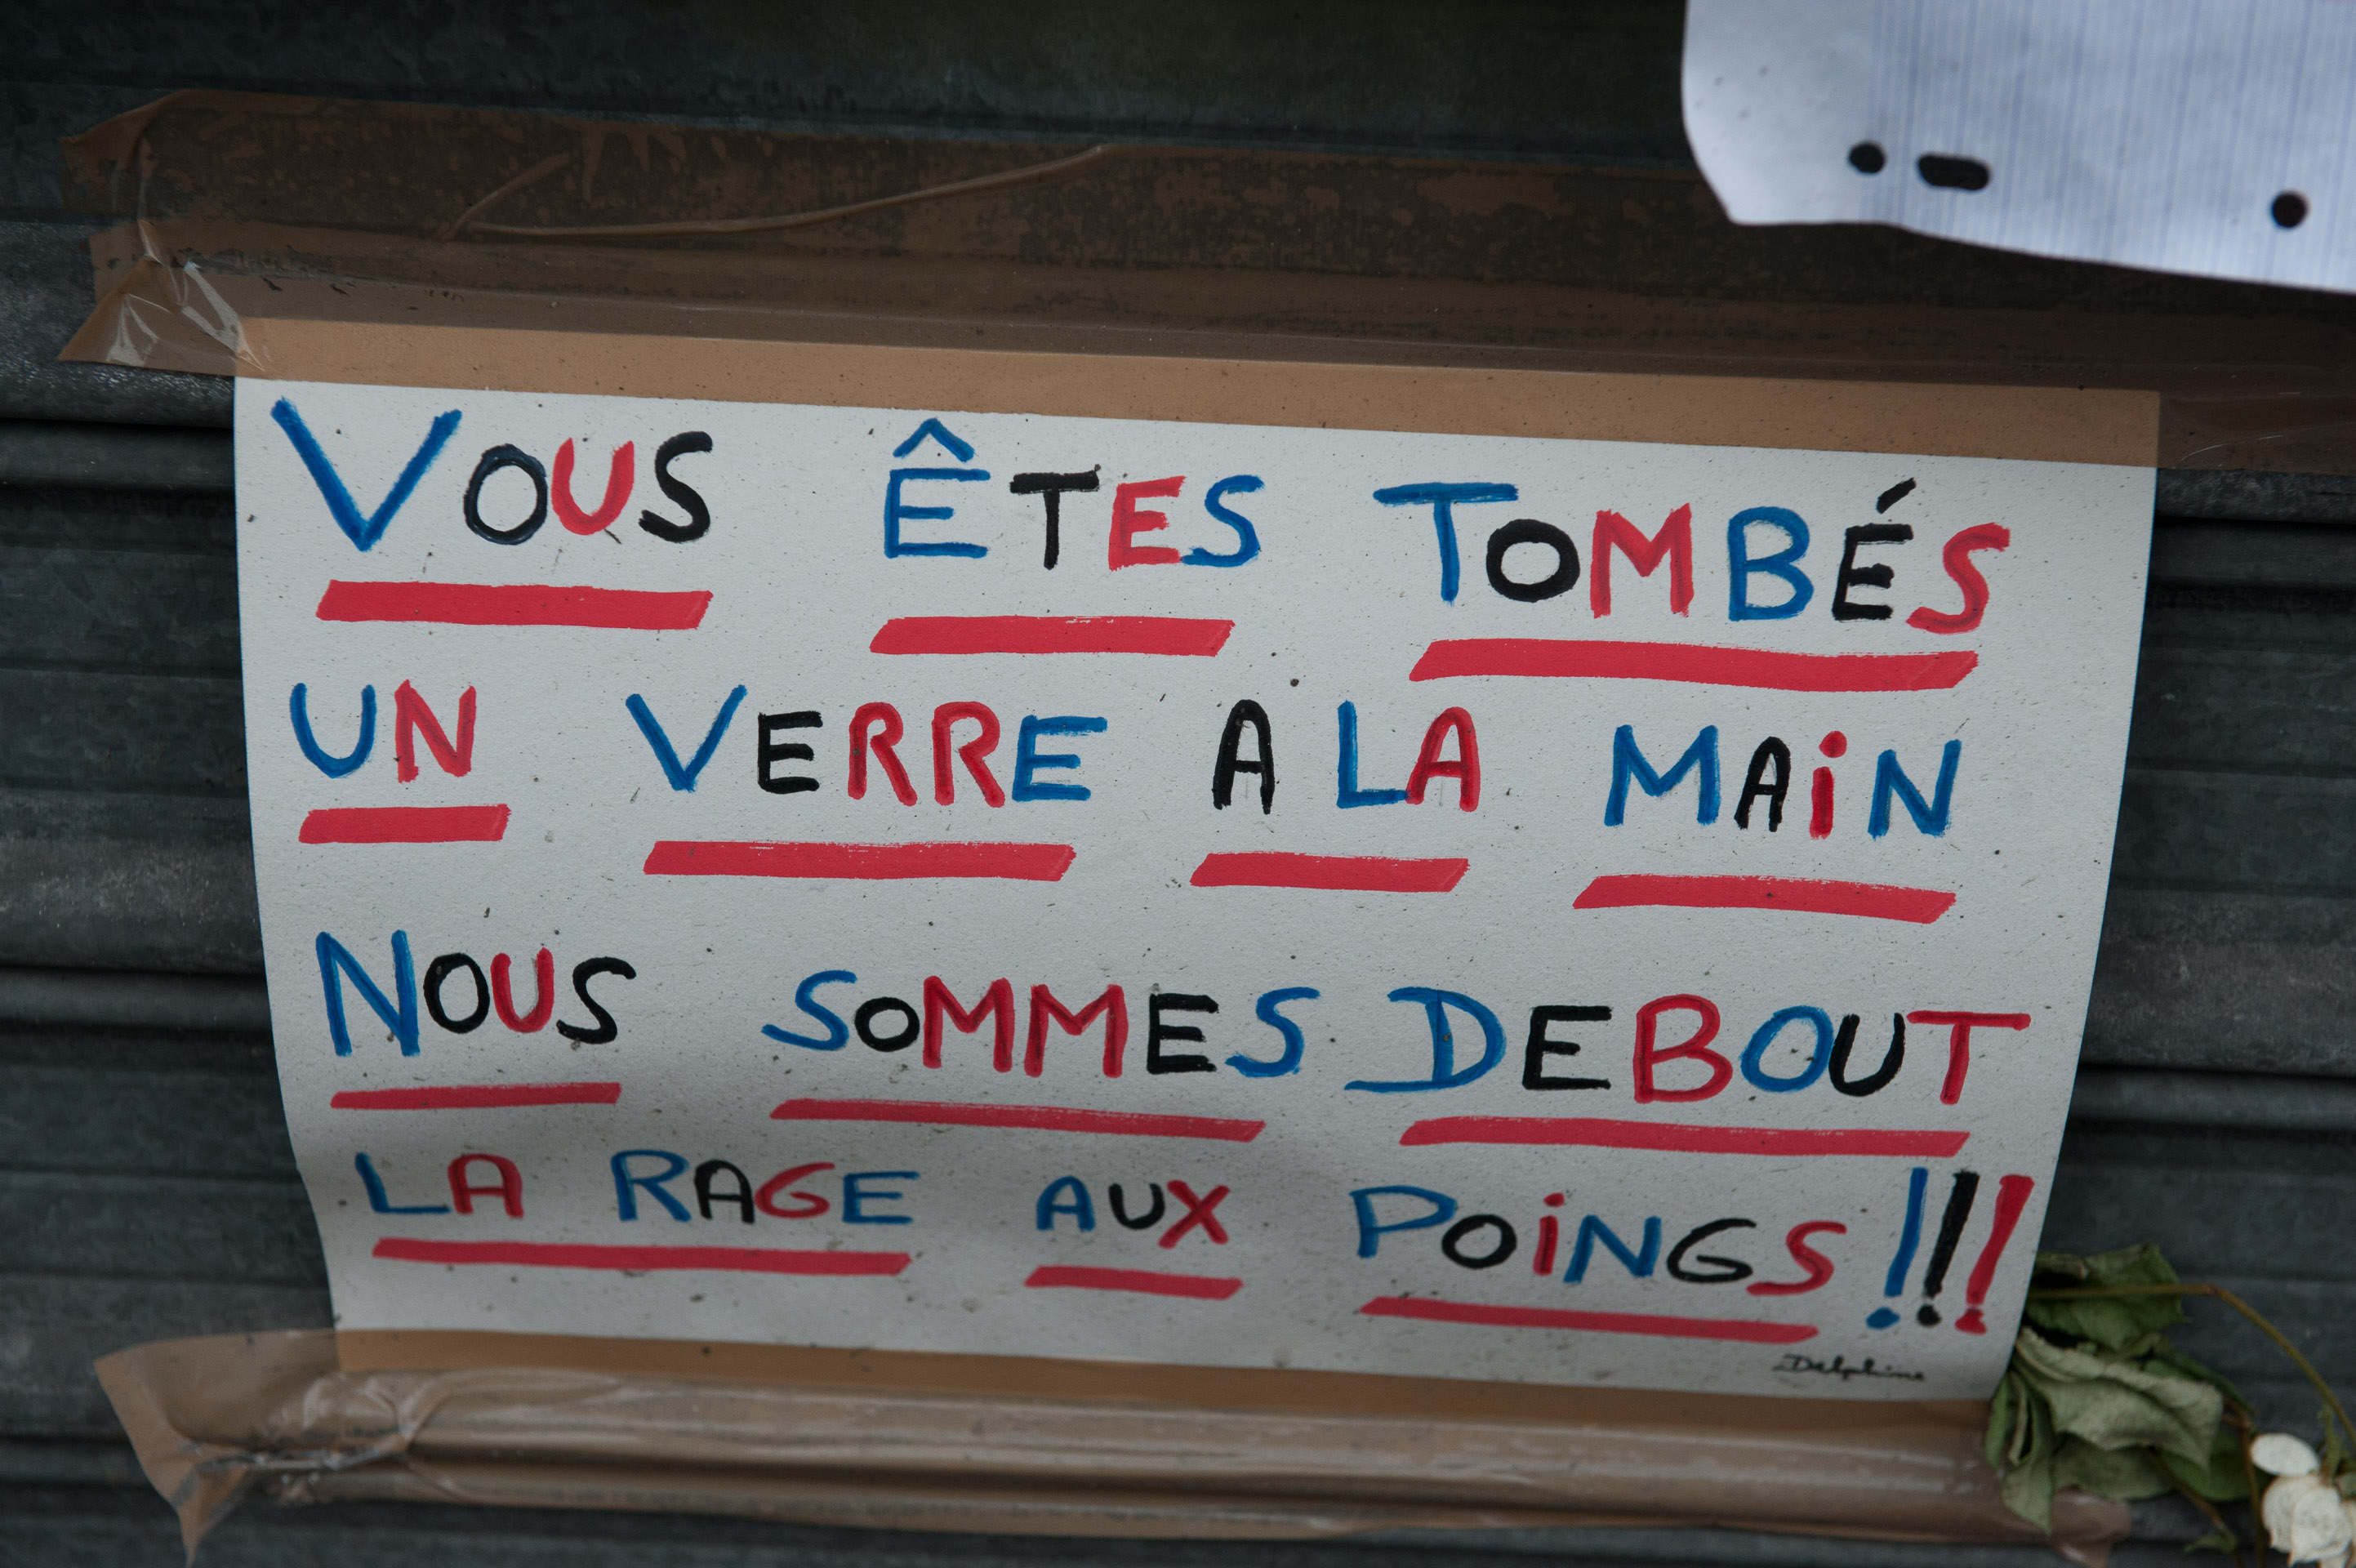 VOUS ÊTES TOMBÉS
UN VERRE A LA MAiN
NOUS SOMMES DEBOUT
LA RAGE AUX POiNGS !!!
Delphine